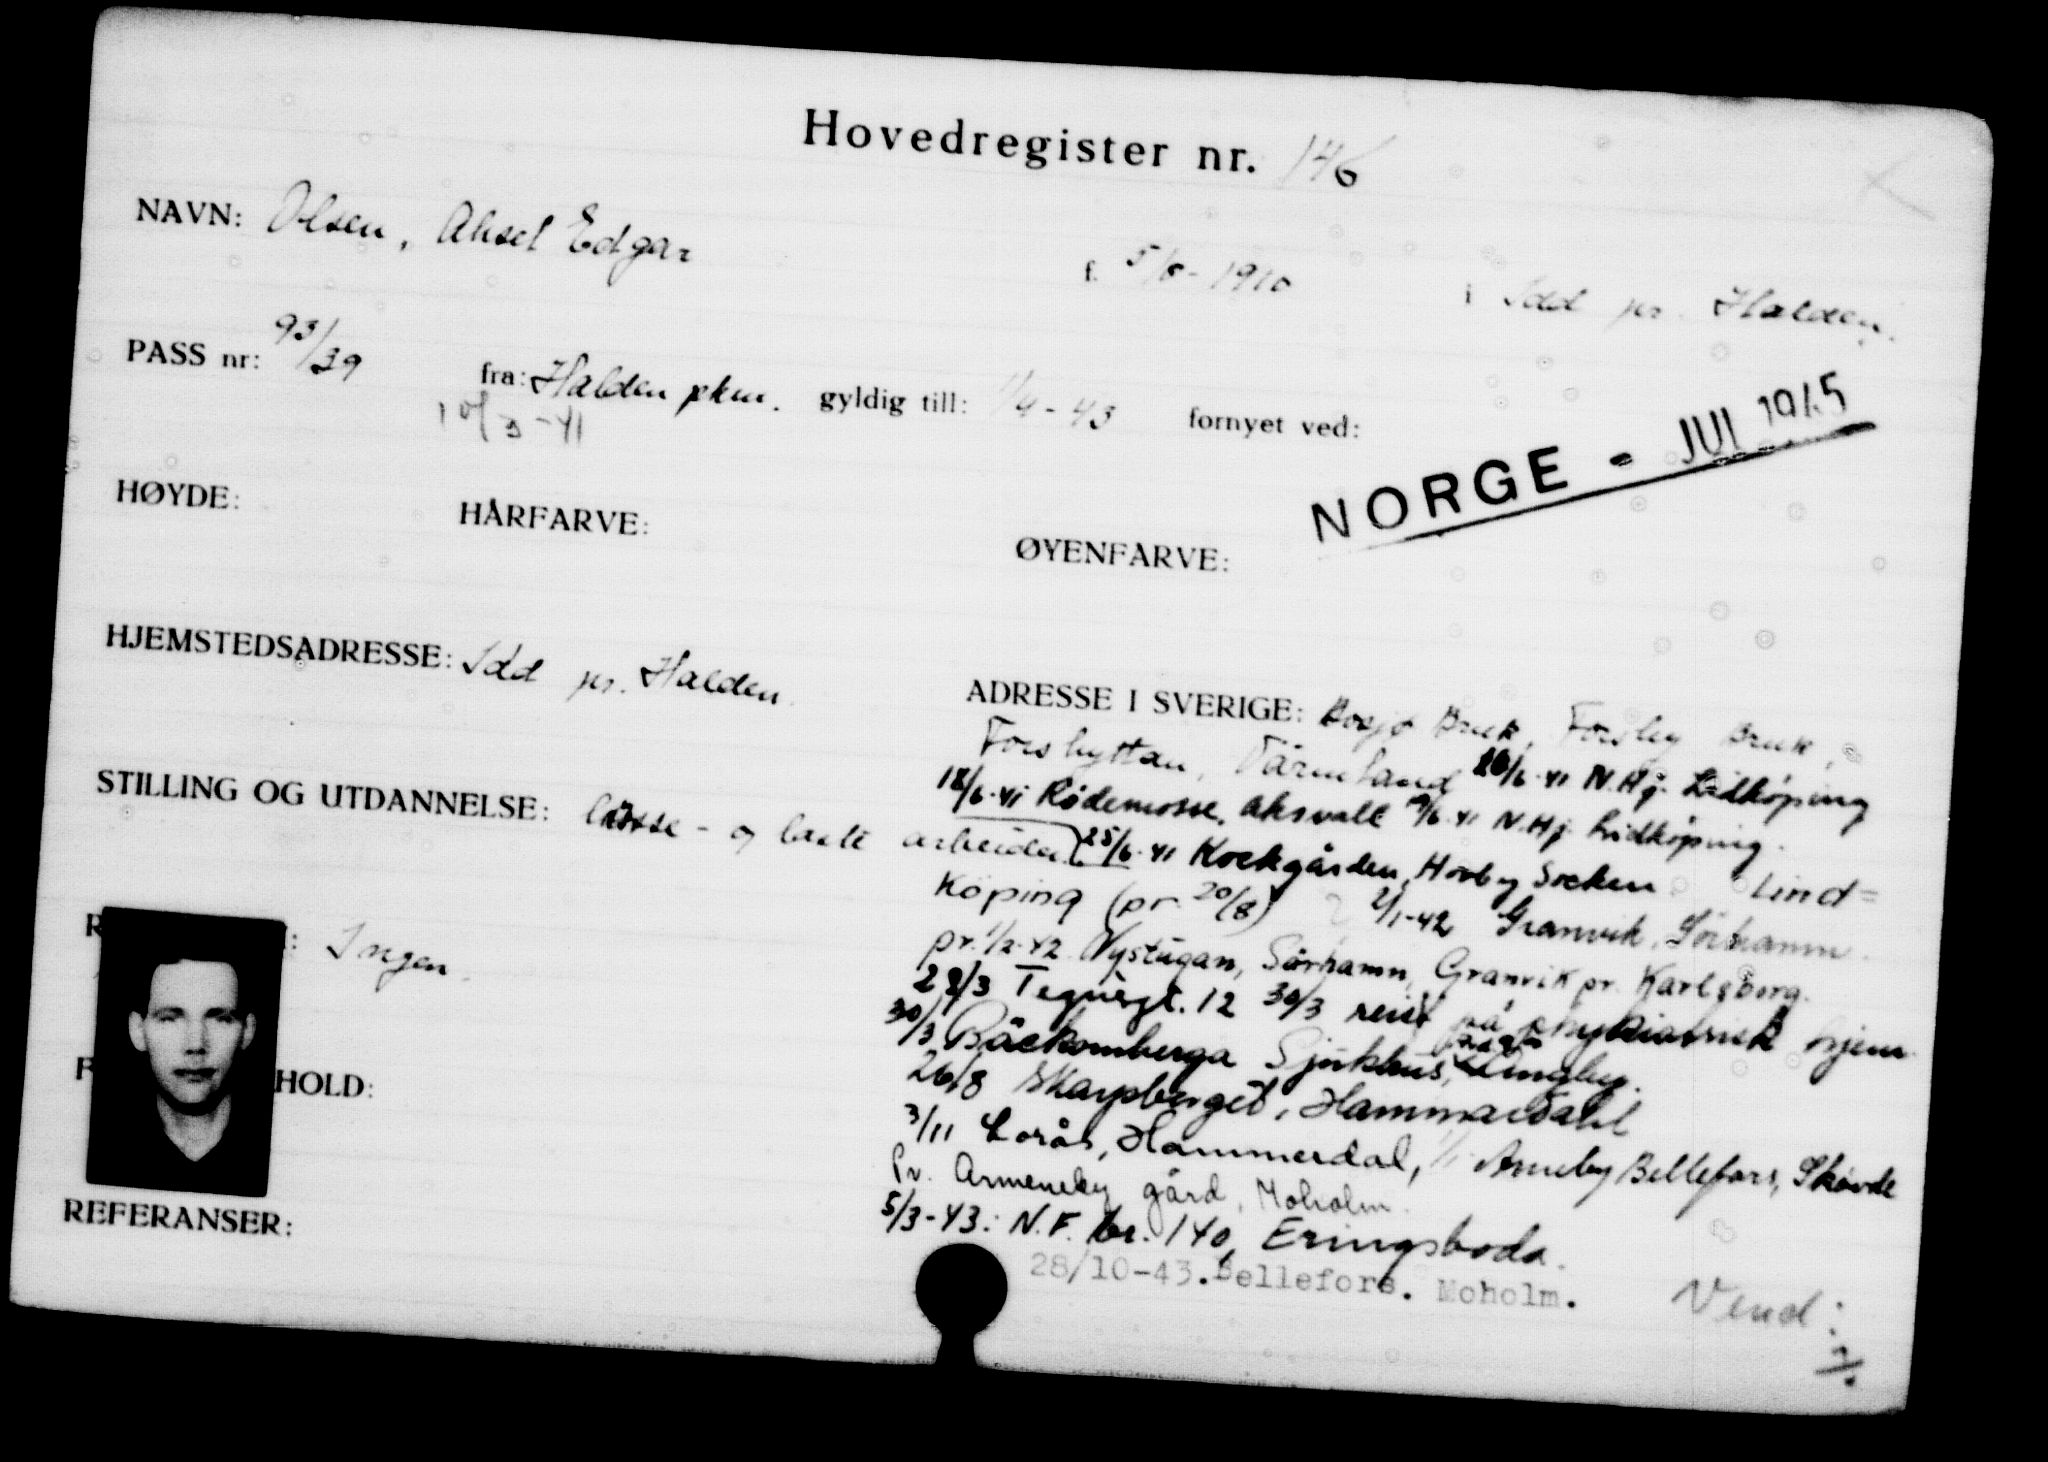 Hovedregister nr. 146
NAVN: Olsen, Aksel Edgar f. 5/8-1910 i Idd pr. Halden.
PASS nr: 93/39 fra: Halden pkm. gyldig till: 1/4-43 fornyet ved:
10/3-41
NORGE - JUL 1945
HØYDE: HÅRFARVE: ØYENFARVE:
HJEMSTEDSADRESSE: Idd pr. Halden.
ADRESSE I SVERIGE: Bosjø Bruk, Forsby Bruk,
Forshyttan, Värmland 16/6-41 N.Hj. Lidköping
18/6-41 Rödemosse, Aksvall 19/6-41 N.Hj. Lidköping.
STILLING OG UTDANNELSE: losse- og laste arbeider
25/6-41 Kockgården, Hovby Socken Lind=
köping (pr. 20/8) 2/1-42 Granvik, Sörhamn.
Ingen.
pr. 1/2-42 Nystugan, Sörhamn, Granvik pr. Karlsborg.
28/3 Tegnérgt. 12 30/3 reist på psykiatrisk hjem
30/3 Bäckomberga Sjukhus,
HOLD:
26/8 Skarpberget, Hammerdahl
3/11 Lorås, Hammerdal, Bellefors, Skövde
Pr. Armeneby gård, Moholm.
REFERANSER:
5/3-43: N.F. br. 140, Eringsboda.
28/10-43. Bellefors. Moholm.
Vend: